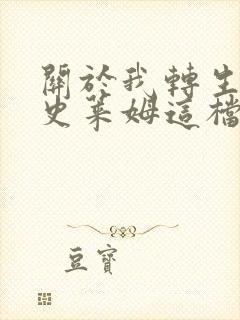 關於我轉生
史萊姆這檔
豆寶